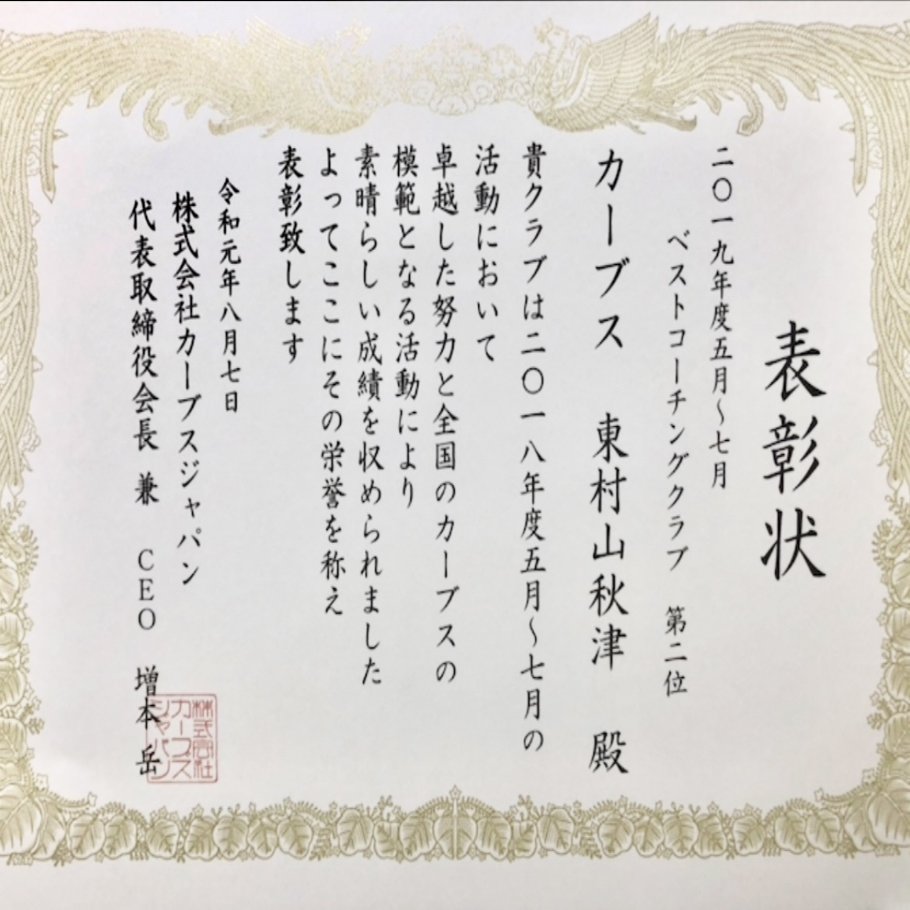 表彰状
二〇一九年度五月～七月
ベストコーチングクラブ 第二位
カーブス 東村山秋津 殿
貴クラブは二〇一八年度五月～七月の
活動において
卓越した努力と全国のカーブスの
模範となる活動により
素晴らしい成績を収められました
よってここにその栄誉を称え
表彰致します
令和元年八月七日
株式会社カーブスジャパン
代表取締役会長 兼 CEO 増本 岳
株式会社
カーブス
ジャパン